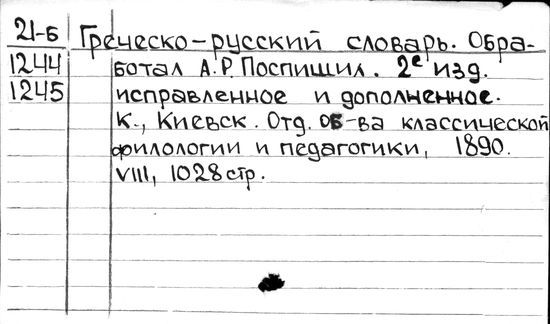 21-Б Греческо-русский словарь. Обра-
1244 ботал А.Р. Поспишил. 2е изд.
1245 исправленное и дополненное.
К., Киевск. Отд. об-ва классической
филологии и педагогики, 1890.
VIII, 1028 стр.